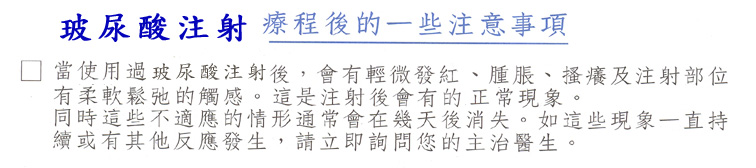 玻尿酸注射 療程後的一些注意事項
當使用過玻尿酸注射後，會有輕微發紅、腫脹、搔癢及注射部位
有柔軟鬆弛的觸感。這是注射後會有的正常現象。
同時這些不適應的情形通常會在幾天後消失。如這些現象一直持
續或有其他反應發生，請立即詢問您的主治醫生。